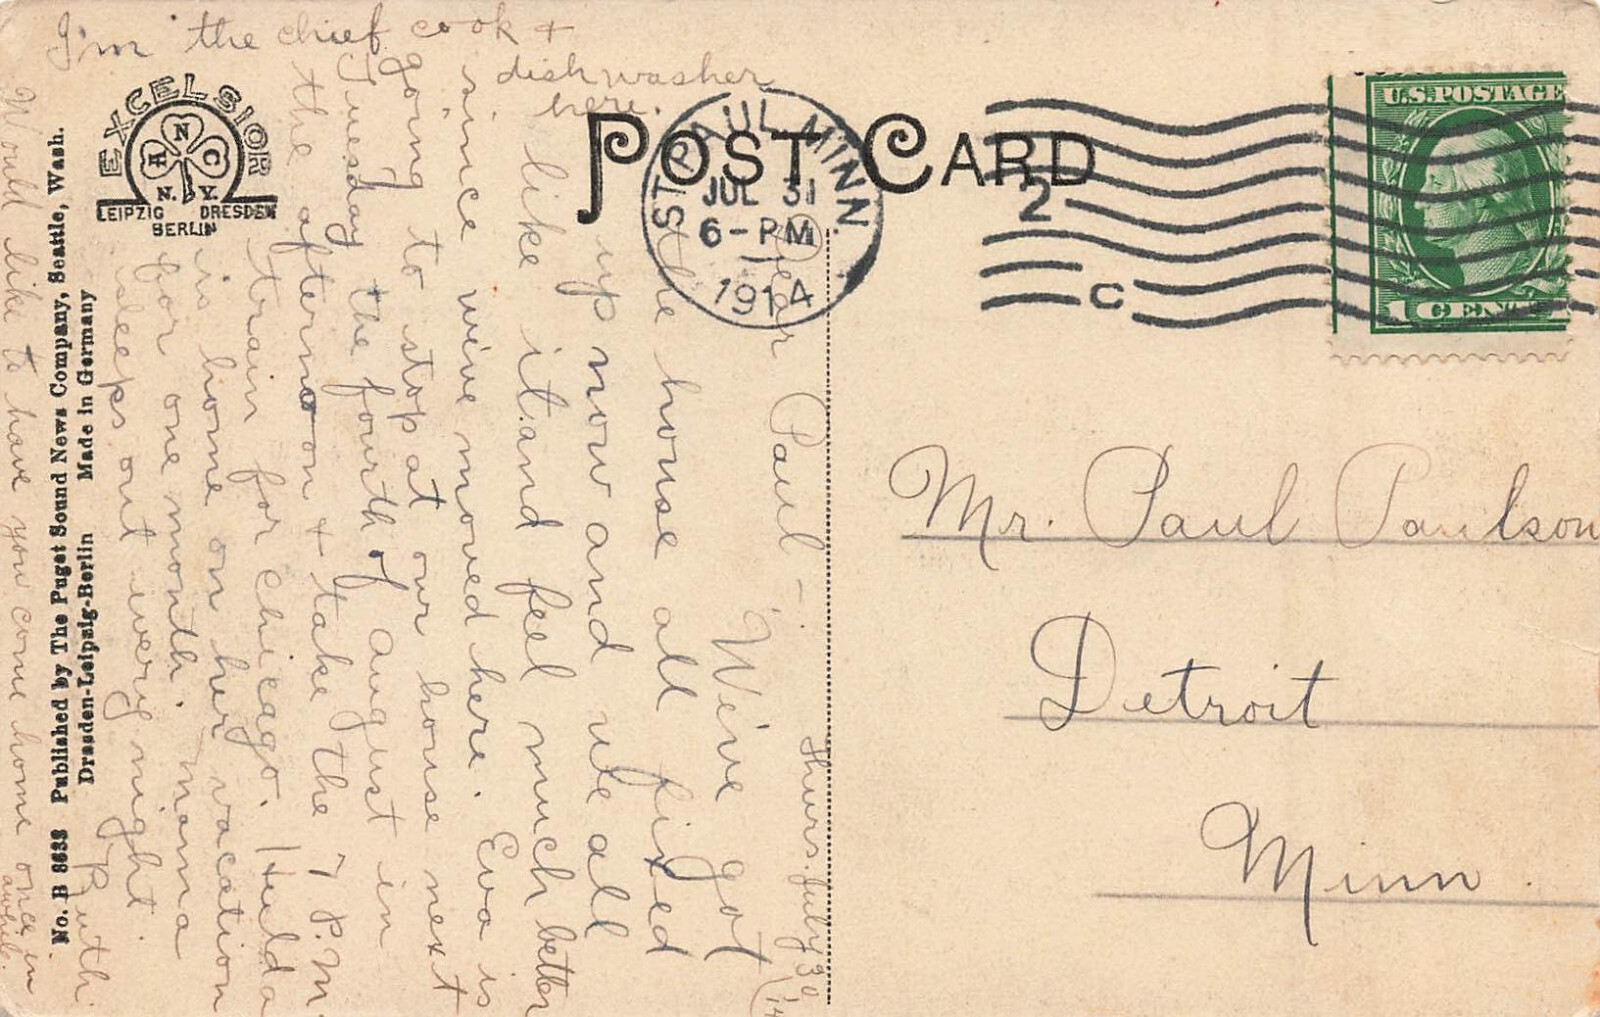 I'm the chief cook +
dishwasher
here.
EXCELSIOR
N
A C
N. Y.
LEIPZIG DRESDEN
BERLIN
No. B 8633 Published by The Puget Sound News Company, Seattle, Wash.
Dresden-Leipzig-Berlin Made in Germany
POST CARD
ST PAUL MINN.
JUL 31
6-PM
1914
2
C
U.S. POSTAGE
1 CENT
Thurs. July 30
'14
Dear Paul -
We've got
the house all fixed
up now and we all
like it and feel much better
since we've moved here. Eva is
going to stop at our house next
Tuesday the fourth of august in
the afternoon + take the 7 P.M
train for Chicago. Hulda
is home on her vacation
for one month. mama
sleeps out every night.
Ruth
Would like to have you come home once in
awhile.
Mr. Paul Paulson
Detroit
Minn.